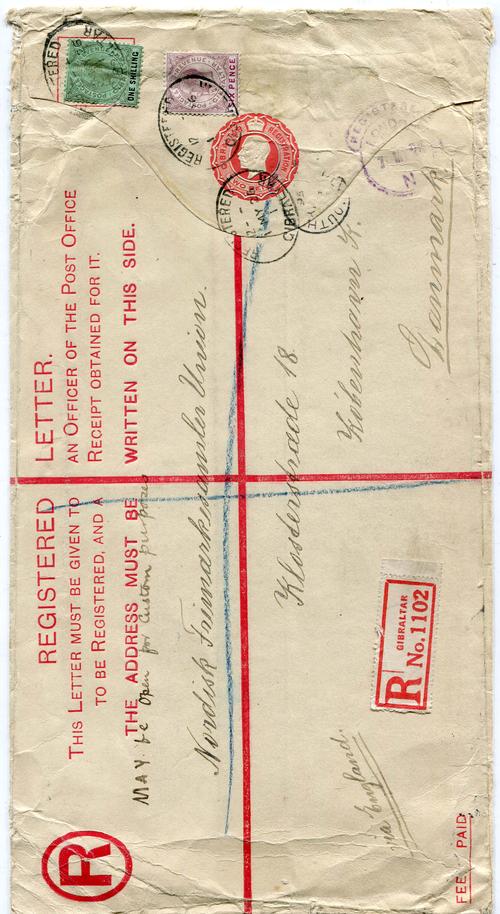 R
REGISTERED LETTER.
THIS LETTER MUST BE GIVEN TO AN OFFICER OF THE POST OFFICE
TO BE REGISTERED, AND A RECEIPT OBTAINED FOR IT.
THE ADDRESS MUST BE WRITTEN ON THIS SIDE.
MAY be open for Custom purposes
Nordisk Frimærkesamler Union.
Klosterstræde 18
Kóbenhavn K.
Danmark
via England.
GIBRALTAR
R No. 1102
FEE PAID
ONE SHILLING
SIX PENCE
POSTAGE & REVENUE
REGISTRATION
REGISTERED
GIBRALTAR
REGISTERED
REGISTERED
GIBRALTAR
MY
REGISTERED
LONDON
N